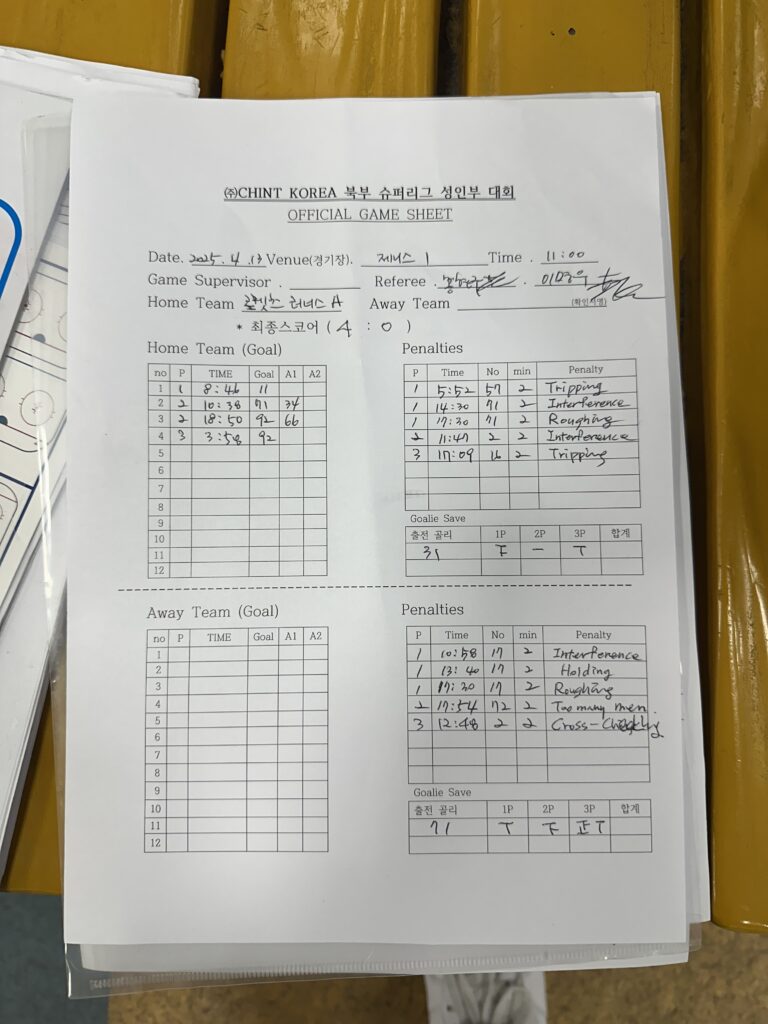 ㈜CHINT KOREA 북부 슈퍼리그 성인부 대회
OFFICIAL GAME SHEET
Date. 2025. 4 .13 Venue(경기장). 제니스 1 Time . 11:00
Game Supervisor . Referee .
Home Team 하니스 A Away Team (확인서명)
* 최종스코어 ( 4 : 0 )
Home Team (Goal)
no P TIME Goal A1 A2
1 1 8:46 11
2 2 10:38 71 34
3 2 18:50 92 66
4 3 3:58 92
5
6
7
8
9
10
11
12
Penalties
P Time No min Penalty
1 5:52 57 2 Tripping
1 14:30 71 2 Interference
1 17:30 71 2 Roughing
2 11:47 2 2 Interference
3 17:09 16 2 Tripping
Goalie Save
출전 골리 1P 2P 3P 합계
31 𝍲 一 丅
Away Team (Goal)
no P TIME Goal A1 A2
1
2
3
4
5
6
7
8
9
10
11
12
Penalties
P Time No min Penalty
1 10:58 17 2 Interference
1 13:40 17 2 Holding
1 17:30 17 2 Roughing
2 17:54 72 2 Too many men.
3 12:48 2 2 Cross-Checking
Goalie Save
출전 골리 1P 2P 3P 합계
71 丅 下 正丅